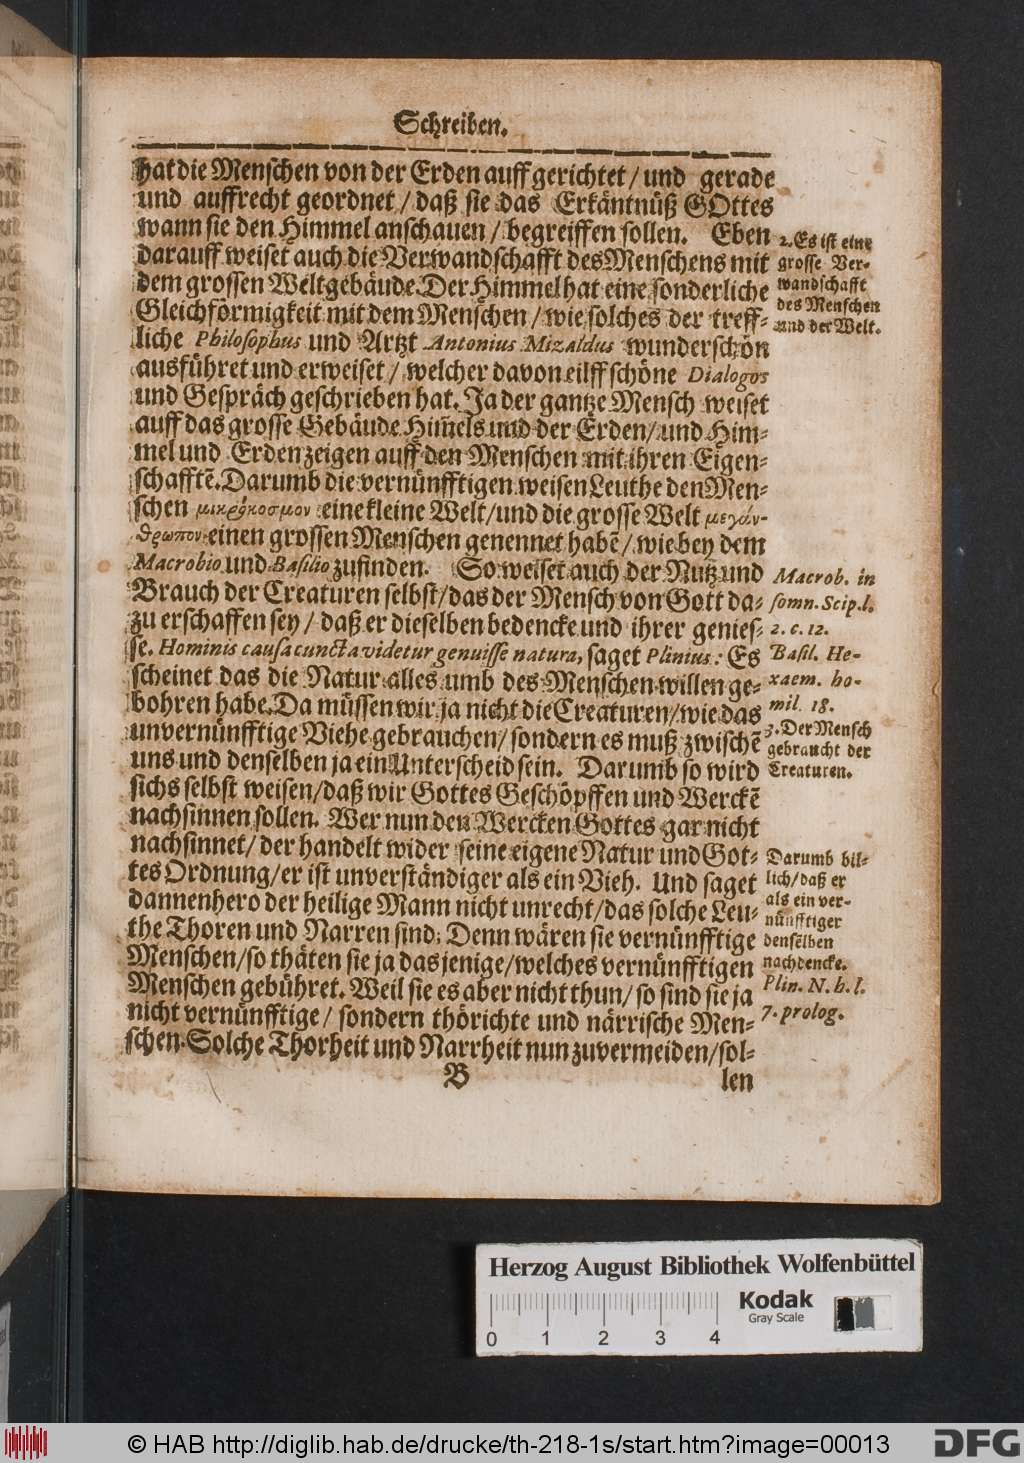 Schreiben.
hat die Menschen von der Erden auffgerichtet / und gerade
und auffrecht geordnet / daß sie das Erkäntnüß GOttes
wann sie den Himmel anschauen / begreiffen sollen. Eben
darauff weiset auch die Verwandschafft des Menschens mit
dem grossen Weltgebäude. Der Himmel hat eine sonderliche
Gleichförmigkeit mit dem Menschen / wie solches der treff-
liche Philosophus und Artzt Antonius Mizaldus wunderschön
ausführet und erweiset / welcher davon eilff schöne Dialogos
und Gespräch geschrieben hat. Ja der gantze Mensch weiset
auff das grosse Gebäude Him̃els und der Erden / und Him-
mel und Erden zeigen auff den Menschen mit ihren Eigen-
schafftẽ. Darumb die vernünfftigen weisen Leuthe den Men-
schen μικρόκοσμον eine kleine Welt / und die grosse Welt μεγάν-
θρωπον einen grossen Menschen genennet habẽ / wie bey dem
Macrobio und Basilio zufinden. So weiset auch der Nutz und
Brauch der Creaturen selbst / das der Mensch von Gott da-
zu erschaffen sey / daß er dieselben bedencke und ihrer genies-
se. Hominis causa cuncta videtur genuisse natura, saget Plinius: Es
scheinet das die Natur alles umb des Menschen willen ge-
bohren habe. Da müssen wir ja nicht die Creaturen / wie das
unvernünfftige Viehe gebrauchen / sondern es muß zwischẽ
uns und denselben ja ein Unterscheid sein. Darumb so wird
sichs selbst weisen / daß wir Gottes Geschöpffen und Werckẽ
nachsinnen sollen. Wer nun den Wercken Gottes gar nicht
nachsinnet / der handelt wider seine eigene Natur und Got-
tes Ordnung / er ist unverständiger als ein Vieh. Und saget
dannenhero der heilige Mann nicht unrecht / das solche Leu-
the Thoren und Narren sind; Denn wären sie vernünfftige
Menschen / so thäten sie ja dasjenige / welches vernünfftigen
Menschen gebühret. Weil sie es aber nicht thun / so sind sie ja
nicht vernünfftige / sondern thörichte und närrische Men-
schen. Solche Thorheit und Narrheit nun zuvermeiden / sol-
B
len
2. Es ist eine
grosse Ver-
wandschafft
des Menschen
und der Welt.
Macrob. in
somn. Scip. l.
2. c. 12.
Basil. He-
xaem. ho-
mil. 18.
3. Der Mensch
gebraucht der
Creaturen.
Darumb bil-
lich / daß er
als ein ver-
nünfftiger
denselben
nachdencke.
Plin. N. h. l.
7. prolog.
Herzog August Bibliothek Wolfenbüttel
Kodak
Gray Scale
0 1 2 3 4
© HAB http://diglib.hab.de/drucke/th-218-1s/start.htm?image=00013
DFG